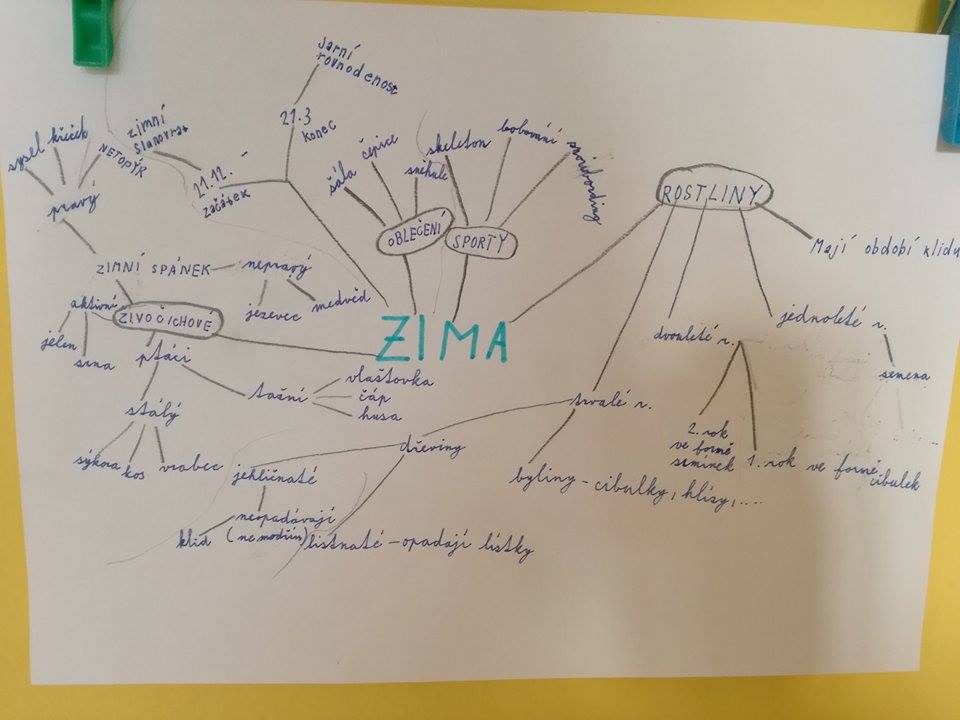 Jarní
rovnodenost
21.3
konec
zimní
slunovrat
21.12.
začátek
sysel
křeček
NETOPÝR
pravý
ZIMNÍ SPÁNEK
nepravý
jezevec
medvěd
ŽIVOČICHOVÉ
aktivní
jelen
srna
ptáci
stálý
sýkora
kos
vrabec
tažní
vlaštovka
čáp
husa
šála
čepice
sněhule
OBLEČENÍ
skeleton
bobování
snowbording
SPORTY
ZIMA
ROSTLINY
Mají období klidu
jednoleté r.
semena
dvouleté r.
2. rok
ve formě
semínek
1. rok ve formě
cibulek
trvalé r.
byliny - cibulky, hlízy, ....
dřeviny
jehličnaté
neopadávají
(ne modřín)
klid
listnaté - opadají lístky